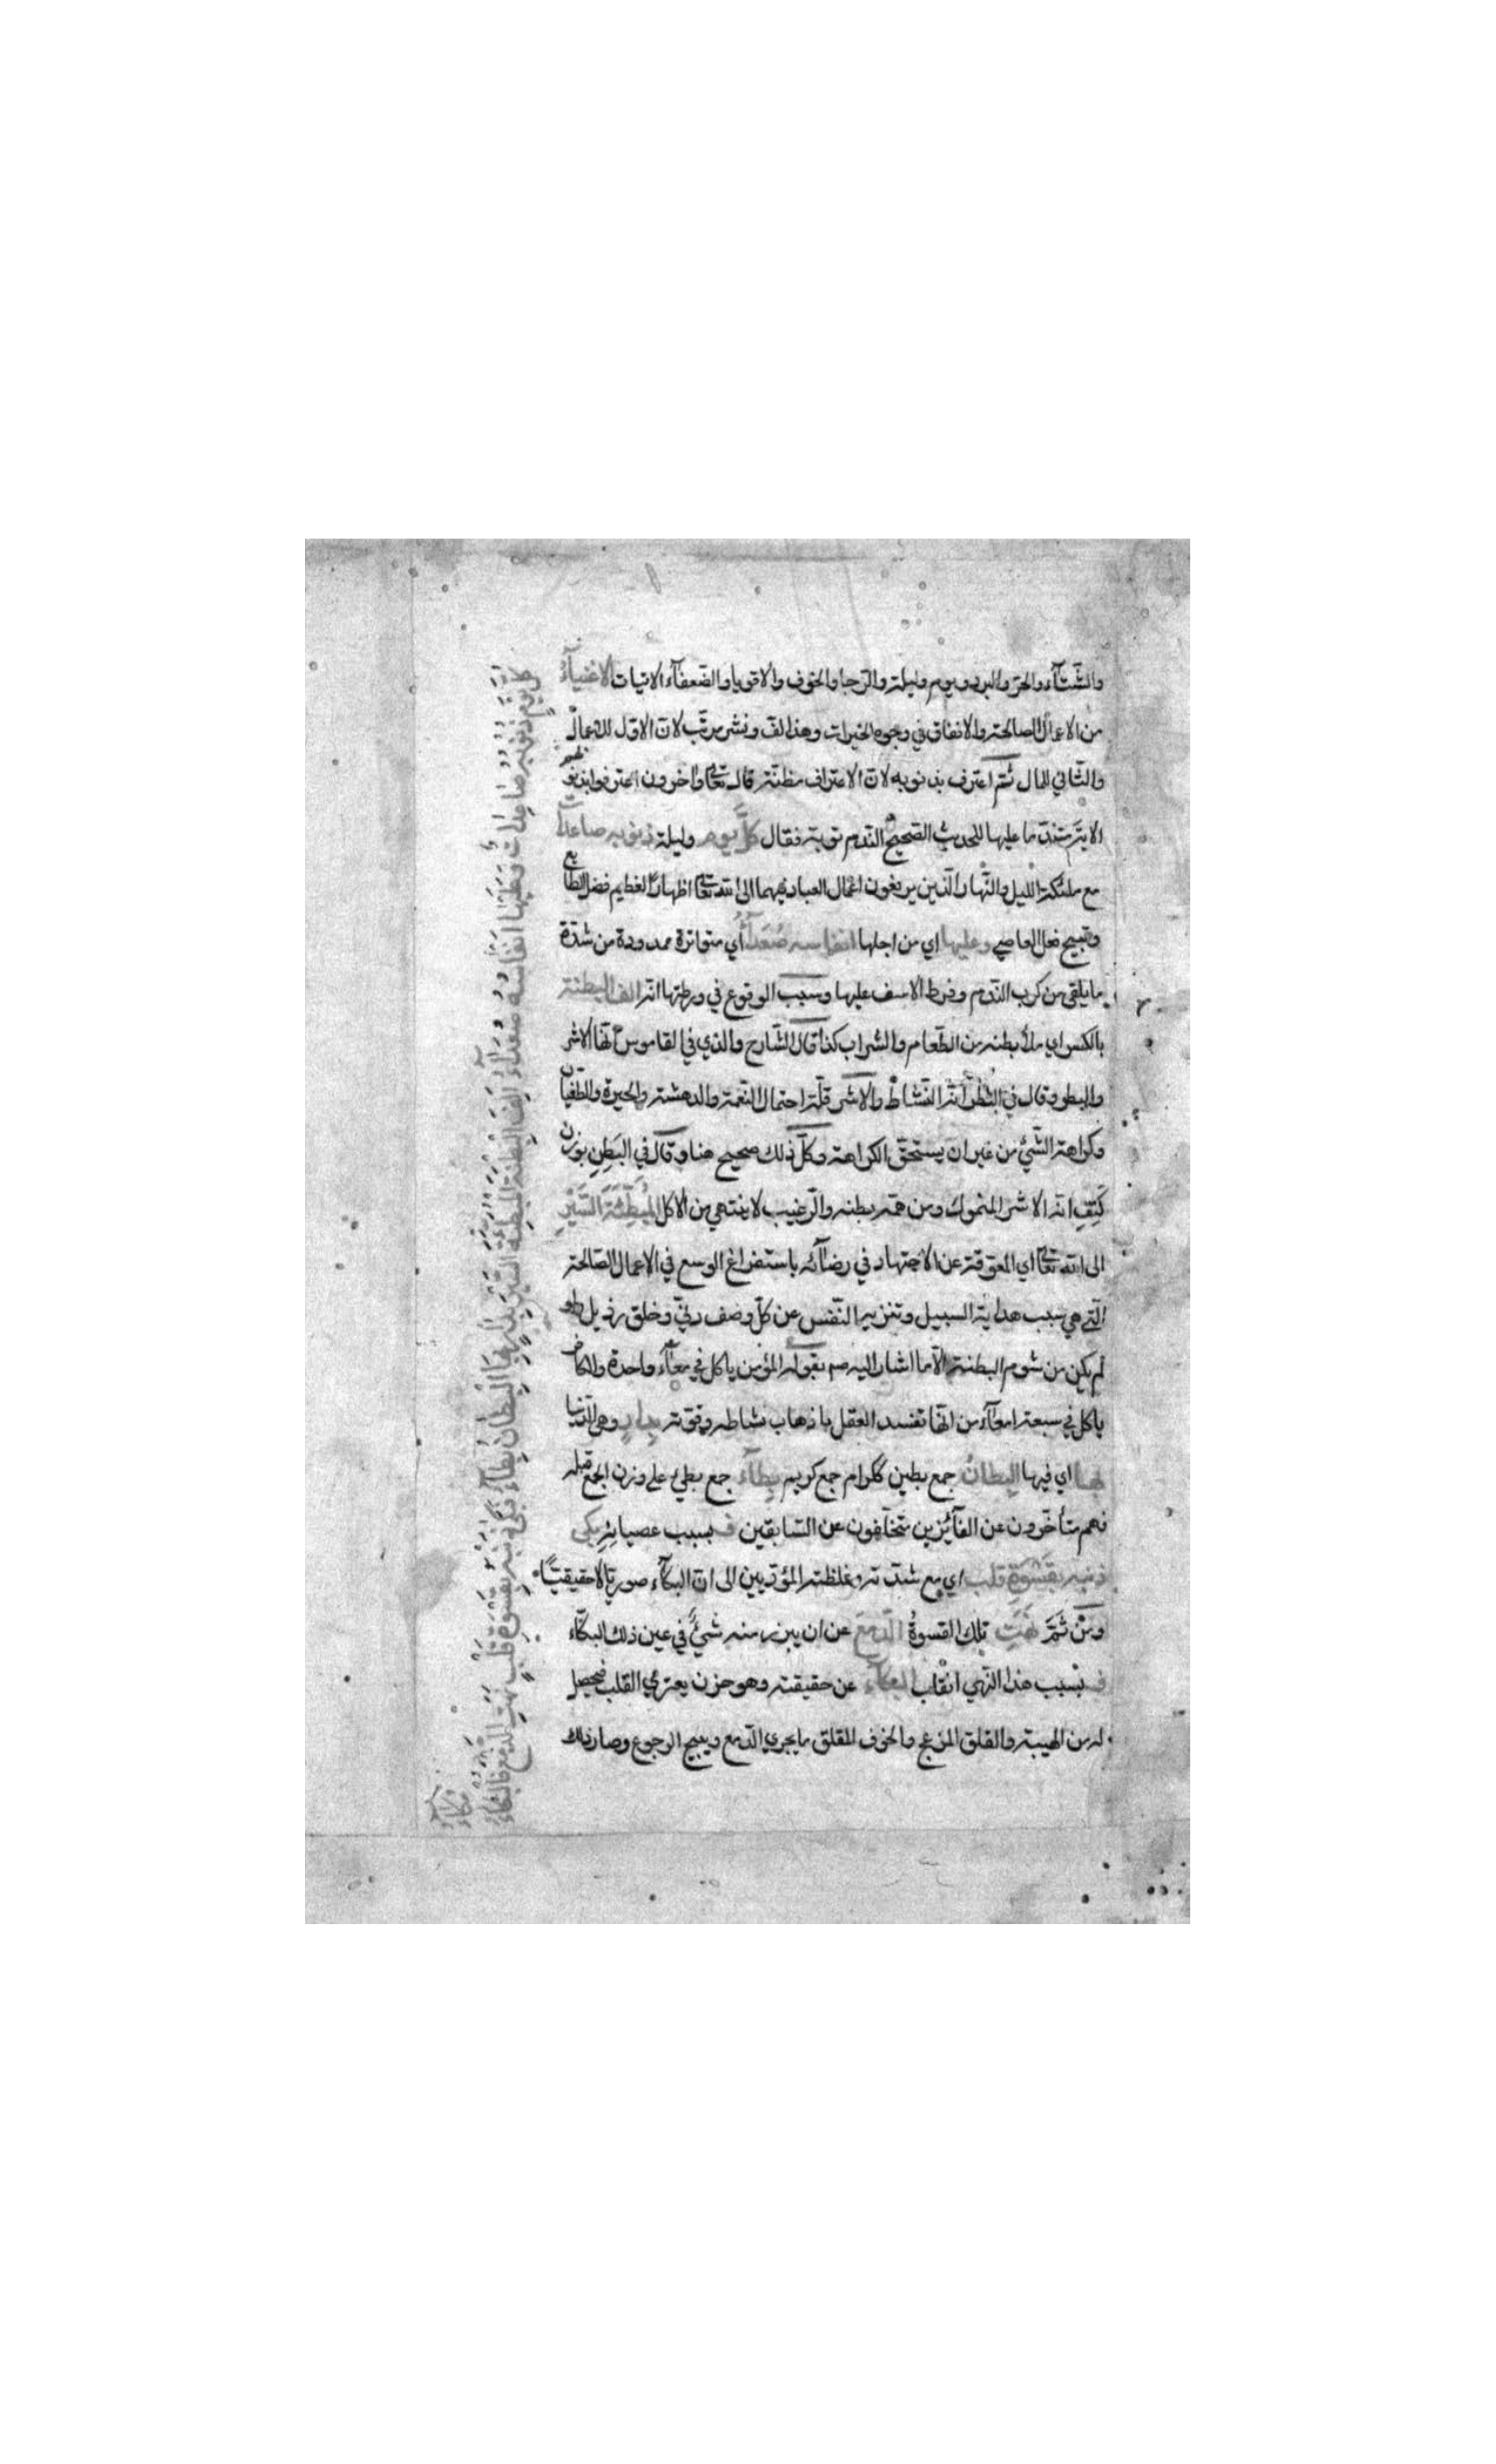 والشّتآء والحرّ والبرد ويوم وليلة والرّجا والخوف والاقويا والضّعفآء الاتيات الاغنيآء
من الاعمال الصالحة والانفاق في وجوه الخيرات وهذا لف ونشر مرتّب لانّ الاول للاعمال
والثّاني للمال ثمّ اعترف بذنوبه لانّ الاعتراف مظنّة قال تعالى واخرون اعترفوا بذنوبهم
الاية ندما عليها للحديث الصّحيح النّدم توبة فقال كلّ يوم وليلة ذنوبه صاعدات
مع ملئكة الليل والنّهار الّذين يرفعون اعمال العباد فيهما الى الله تعالى اظهارًا لعظيم فضل الطّايع
وقبيح فعل العاصي وعليها اي من اجلها انفاسه صُعَدآءُ اي متواترة ممدودة من شدّة
ما يلقى من كرب النّدم وفرط الاسف عليها وسبب الوقوع في ورطتها انّه الف البطنة
بالكسر اي ملأ بطنه من الطّعام والشراب كذا قال الشّارح والذي في القاموس انّها الاشر
والبطر وقال في البَطَر انّه النّشاط والاشر قلّة احتمال النّعمة والدهشة والحيرة والطّغيان
وكراهة الشّيء من غير ان يستحقّ الكراهة وكلّ ذلك صحيح هنا وقال في البَطِن بوزن
كَتِفٍ انّه الاشر المتموّل ومن همّه بطنه والرّغيب لا ينتهي من الاكل المُبطِّئةَ السَّيْرِ
الى الله تعالى اي المعوّقة عن الاجتهاد في رضآئه باستفراغ الوسع في الاعمال الصّالحة
الّتي هي سبب هداية السبيل وتنزيه النّفس عن كلّ وصف دنيّ وخلق رذيل ولو
لم يكن من شوم البطنة الّا ما اشار اليه صم بقوله المؤمن ياكل في معآء واحدة والكافر
ياكل في سبعة امعآء من انّها تفسد العقل باذهاب نشاطه وقوّته بدارٍ وهي الدّنيا
بها اي فيها البِطانُ جمع بطين ككرام جمع كريم بِطآءُ جمع بطيء على وزن الجمع قبله
فهم متأخّرون عن الفآئزين متخلّفون عن السّابقين فـ بسبب عصيانه بكى
ذنبه بقسوة قلب اي مع شدّته وغلظته المؤدّيين الى انّ البكآء صوريّا لا حقيقيّا
ومن ثَمَّ نهَتِ تلك القسوةُ الدّمعَ عن ان يبرز منه شيء في عين ذلك البكّاء
فـ بسبب هذا النّهي انقلب البكآء عن حقيقته وهو حزن يعتري القلب فيحصل
له من الهيبة والقلق المزعج والخوف المقلق ما يجري الدّمع ويهيج الرجوع وصار ذلك
كلَّ يومٍ ذنوبه صاعدات وعليها انفاسه صعدآءُ الف البطنة المبطئة السّير بدارٍ بها البطان بطآءُ فبكى ذنبه بقسوة قلبٍ نهت الدّمع فالبكآءُ
مكآءُ